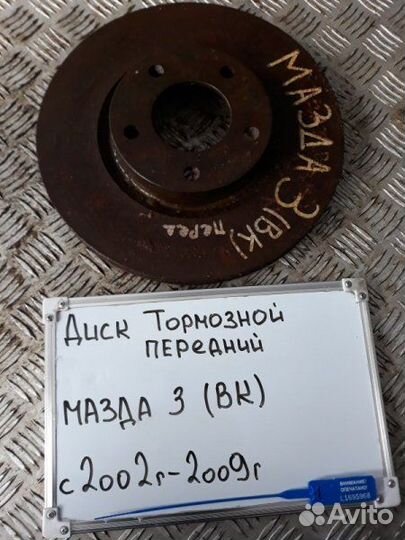 МАЗДА 3 (ВК)
перед
Диск Тормозной
передний
МАЗДА 3 (ВК)
с 2002г-2009г
ВНИМАНИЕ!
ОПЕЧАТАНО!
Avito